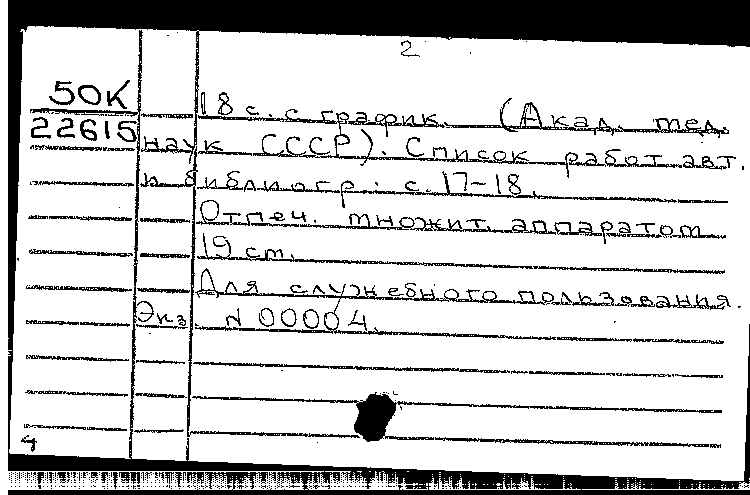 2
50К 18 с. с график. (Акад. мед.
22615 наук СССР). Список работ авт.
и библиогр.: с. 17-18.
Отпеч. множит. аппаратом
19 см.
Для служебного пользования.
Экз. N 00004.